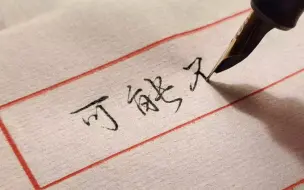 可能不